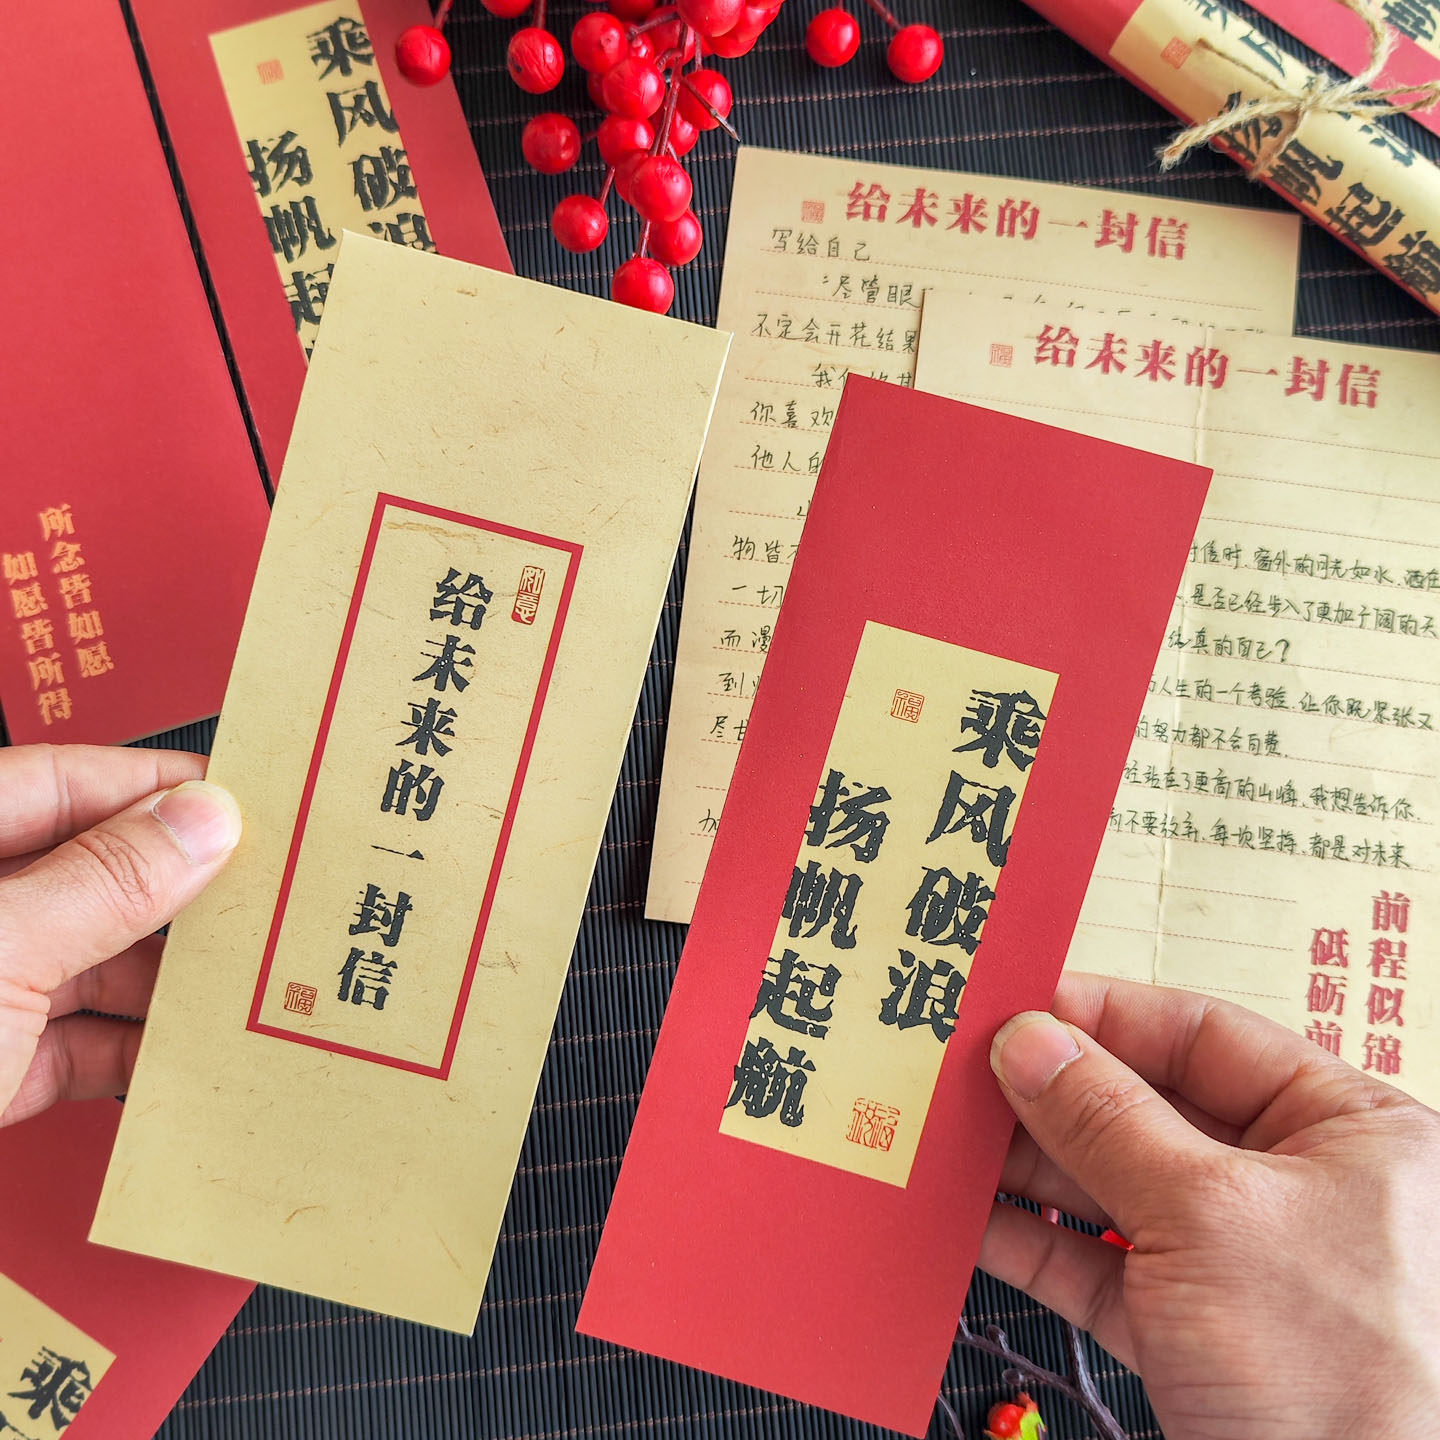 乘风破浪
扬帆起
所念皆如愿
如愿皆所得
给未来的一封信
如意
福
乘风破浪
扬帆起航
福
给未来的一封信
福
写给自己
尽管眼
不定会开花结果
你喜欢
他人的
物皆
一切
而漫
到
尽甘
给未来的一封信
福
信时,窗外的月光如水,洒在
是否已经步入了更加广阔的天
真的自己?
人生的一个考验,让你既紧张又
的努力都不会白费.
站在了更高的山峰,我想告诉你,
不要放弃,每一次坚持,都是对未来
前程似锦
砥砺前
扬帆起航
乘